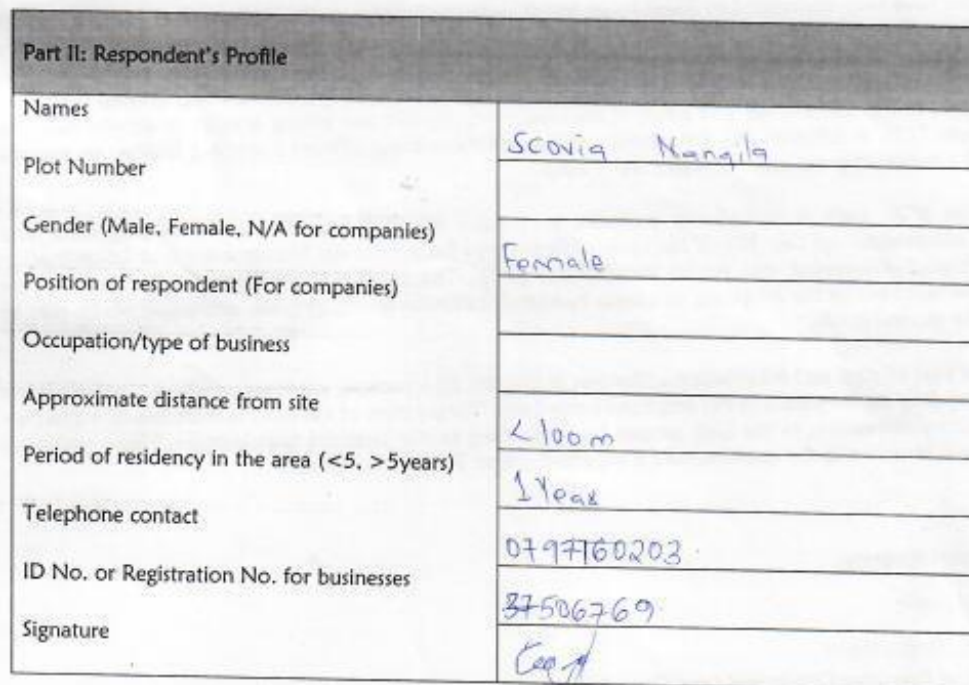 Part II: Respondent's Profile
Names
Scovia Nangila
Plot Number
Gender (Male, Female, N/A for companies)
Female
Position of respondent (For companies)
Occupation/type of business
Approximate distance from site
<100m
Period of residency in the area (<5, >5years)
1 Year
Telephone contact
0797160203
ID No. or Registration No. for businesses
37506769
Signature